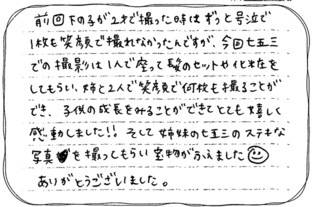 前回下の子が2才で撮った時はずっと号泣で
1枚も笑顔で撮れなかったんですが、今回七五三
での撮影は1人で座って髪のセットや化粧を
してもらい、姉と2人で笑顔で何枚も撮ることが
でき、子供の成長をみることができてとても嬉しく
感動しました!! そして姉妹の七五三のステキな
写真を撮ってもらい宝物がふえました
ありがとうございました。